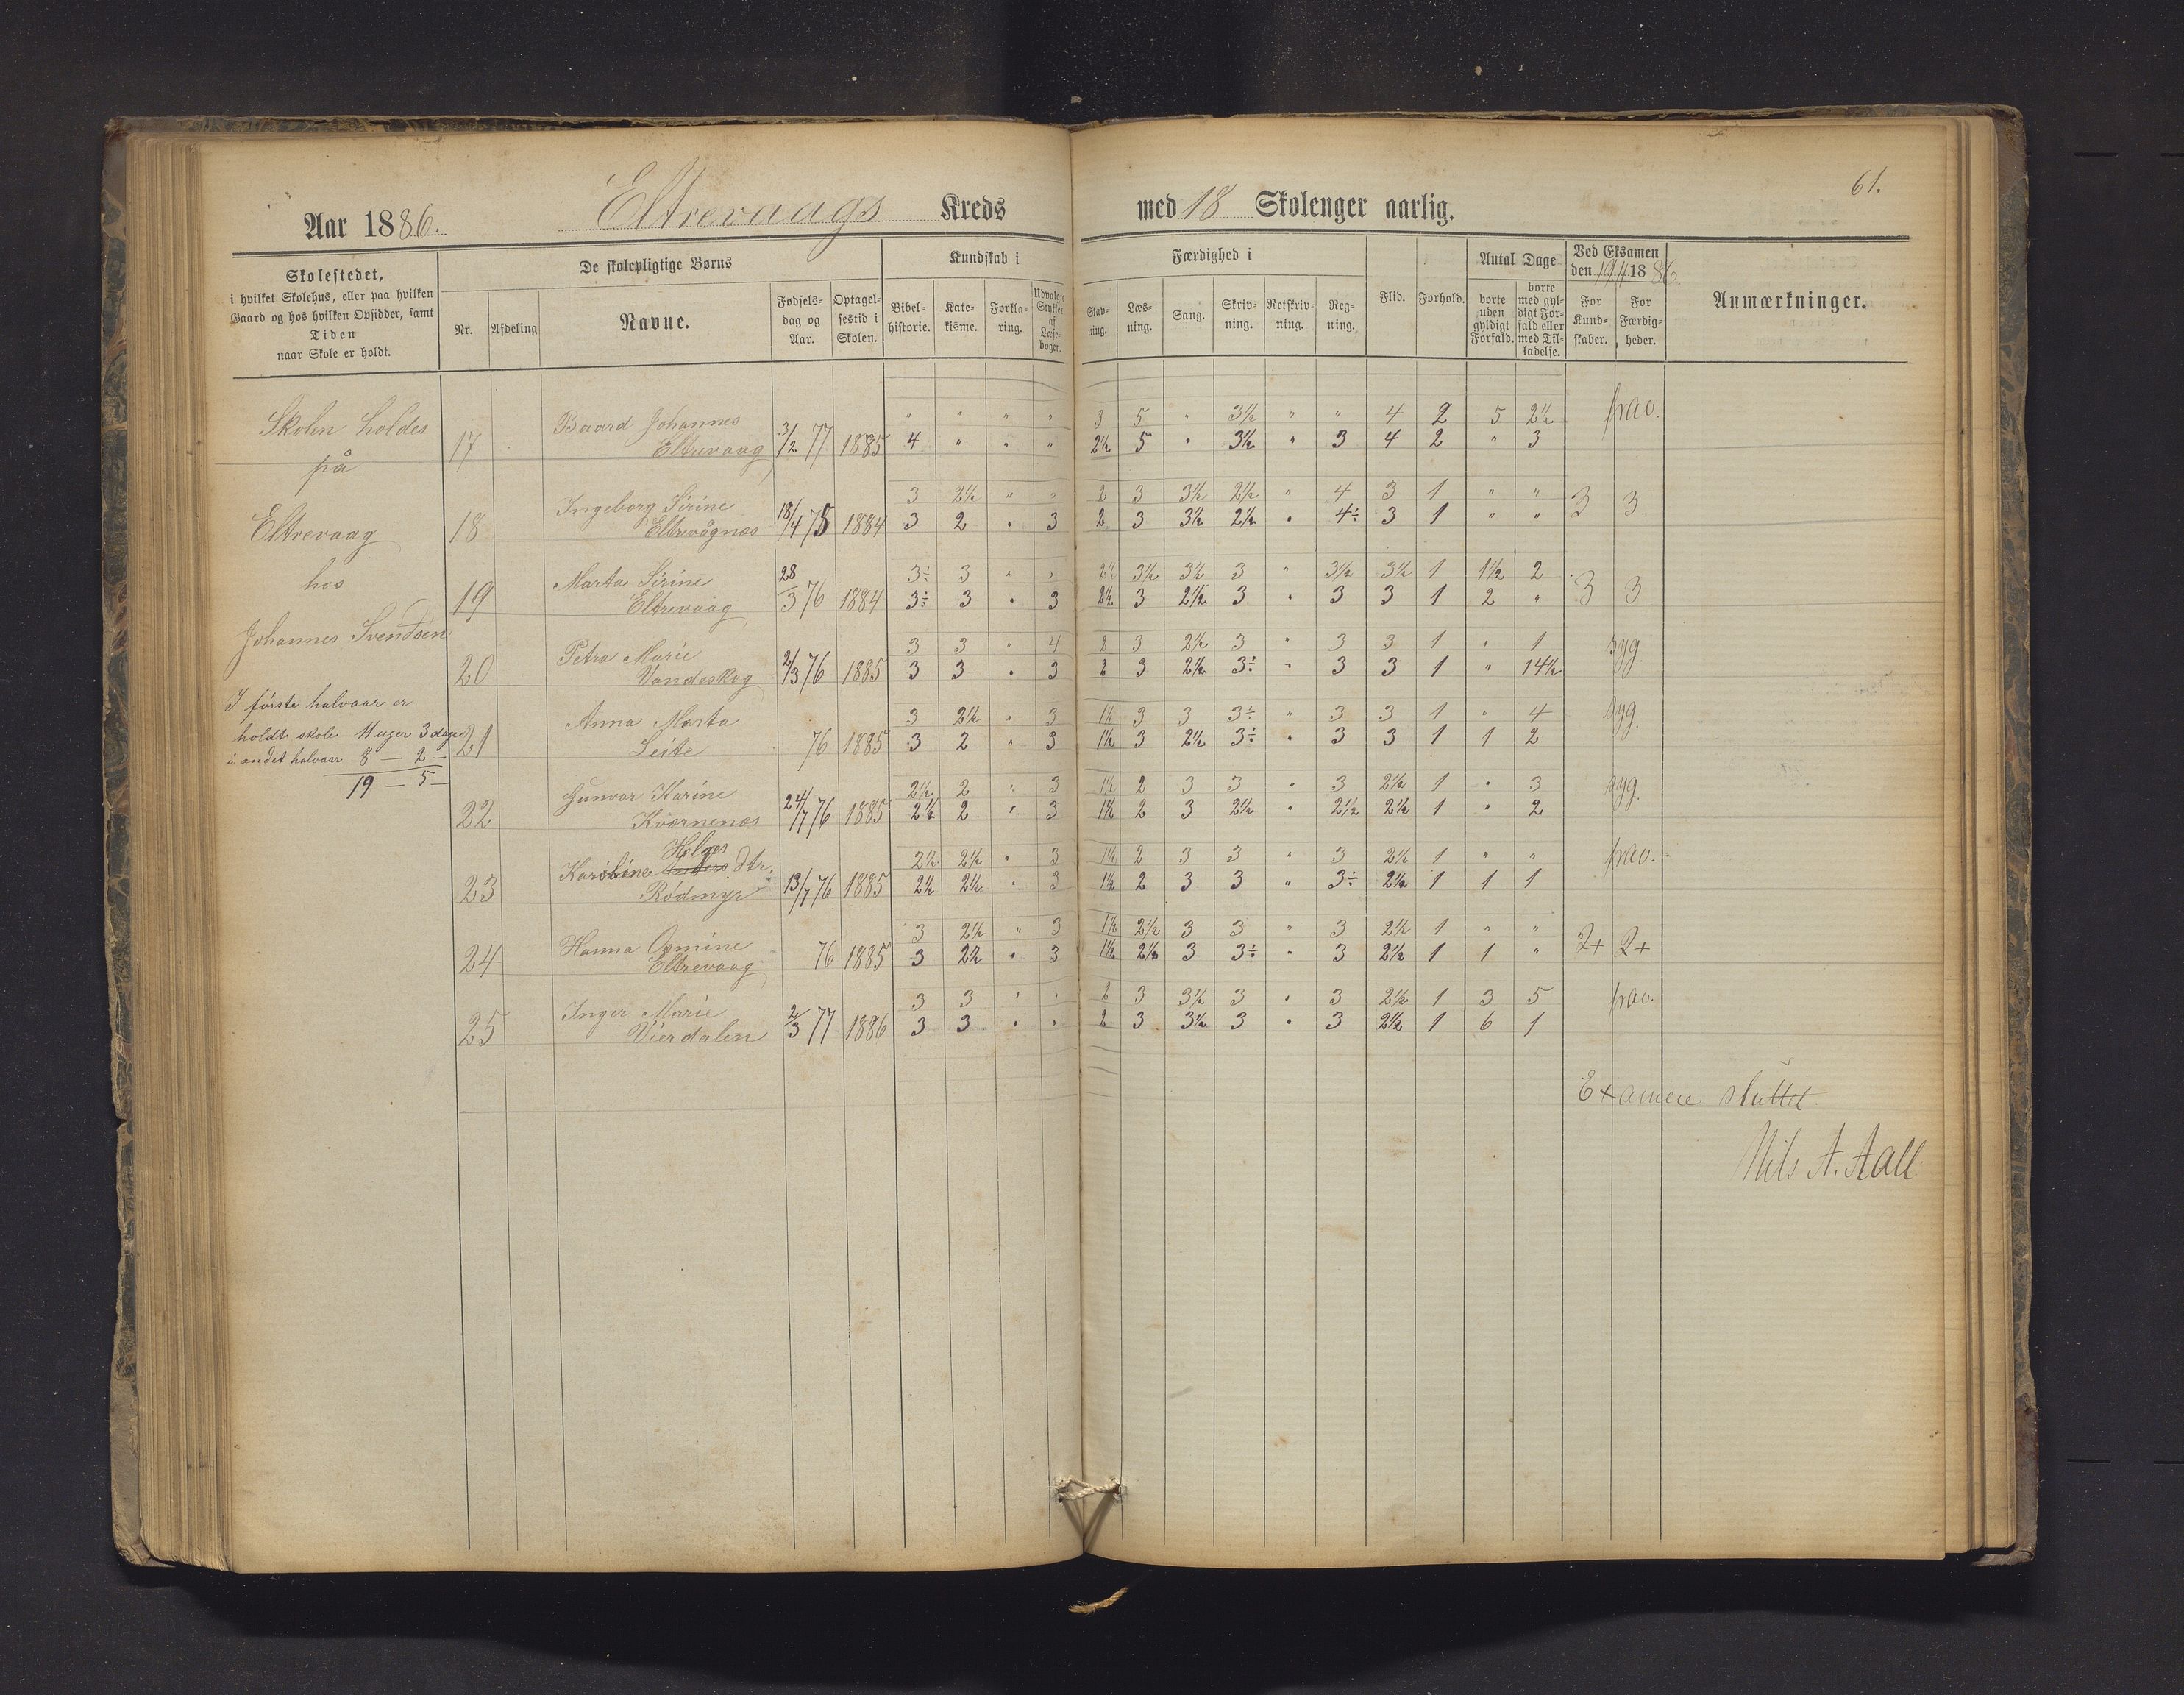 61.
Aar 1886. Eltrevaags Kreds med 18 Skoleuger aarlig.
Skolestedet,
i hvilket Skolehus, eller paa hvilken
Gaard og hos hvilken Opsidder, samt
Tiden
naar Skole er holdt.
De skolepligtige Børns
Nr. Afdeling Navne. Fødselsdag og Aar. Optagelsestid i Skolen.
Kundskab i
Bibelhistorie. Katekisme. Forklaring. Udvalgte Stykker af Læsebogen.
Færdighed i
Stavning. Læsning. Sang. Skrivning. Retskrivning. Regning.
Flid. Forhold.
Antal Dage
borte uden gyldigt Forfald. borte med gyldigt Forfald eller med Tilladelse.
Ved Eksamen
den 19/4 1886
For Kundskaber. For Færdigheder.
Anmærkninger.
Skolen holdes
på
Eltrevaag
hos
Johannes Svendsen
I förste halvaar er
holdt skole 11 uger 3 dage
i andet halvaar 8 — 2 —
19 — 5 —
" " " " 3 5 " 3½ " " 4 2 5 2½ frav.
17 Baard Johannes Eltrevaag 3/2 77 1885 4 " " " 2½ 5 " 3½ " 3 4 2 " 3
3 2½ " " 2 3 3½ 2½ " 4 3 1 " " 3 3.
18 Ingeborg Sirine Eltrevågnæs 18/4 75 1884 3 2 " 3 2 3 3½ 2½ " 4÷ 3 1 " "
3÷ 3 " " 2½ 3½ 3½ 3 " 3½ 3½ 1 1½ 2 3 3
19 Marta Sirine Eltrevaag 28/3 76 1884 3÷ 3 " 3 2½ 3 2½ 3 " 3 3 1 2 "
3 3 " 4 2 3 2½ 3 " 3 3 1 " 1 syg.
20 Petra Marie Vandeskog 2/3 76 1885 3 3 " 3 2 3 2½ 3÷ " 3 3 1 " 14½
3 2½ " 3 1½ 3 3 3÷ " 3 3 1 " 4 syg.
21 Anna Marta Leite 76 1885 3 2 " 3 1½ 3 2½ 3÷ " 3 3 1 1 2
2½ 2 " 3 1½ 2 3 3 " 3 2½ 1 " 3 syg.
22 Gunvor Karine Kværnenæs 24/7 76 1885 2½ 2 " 3 1½ 2 3 2½ " 2½ 2½ 1 " 2
2½ 2½ " 3 1½ 2 3 3 " 3 2½ 1 " " frav.
23 Karoline Helges Dtr. Rödmyr 13/7 76 1885 2½ 2½ " 3 1½ 2 3 3 " 3÷ 2½ 1 1 1
3 2½ " 3 1½ 2½ 3 3 " 3 2½ 1 " " 2+ 2+
24 Hanna Osmine Eltrevaag 76 1885 3 2½ " 3 1½ 2½ 3 3÷ " 3 2½ 1 1 "
3 3 " " 2 3 3½ 3 " 3 2½ 1 3 5 frav.
25 Inger Marie Vierdalen 2/3 77 1886 3 3 " " 2 3 3½ 3 " 3 2½ 1 6 1
Examen sluttet.
Nils A. Aall